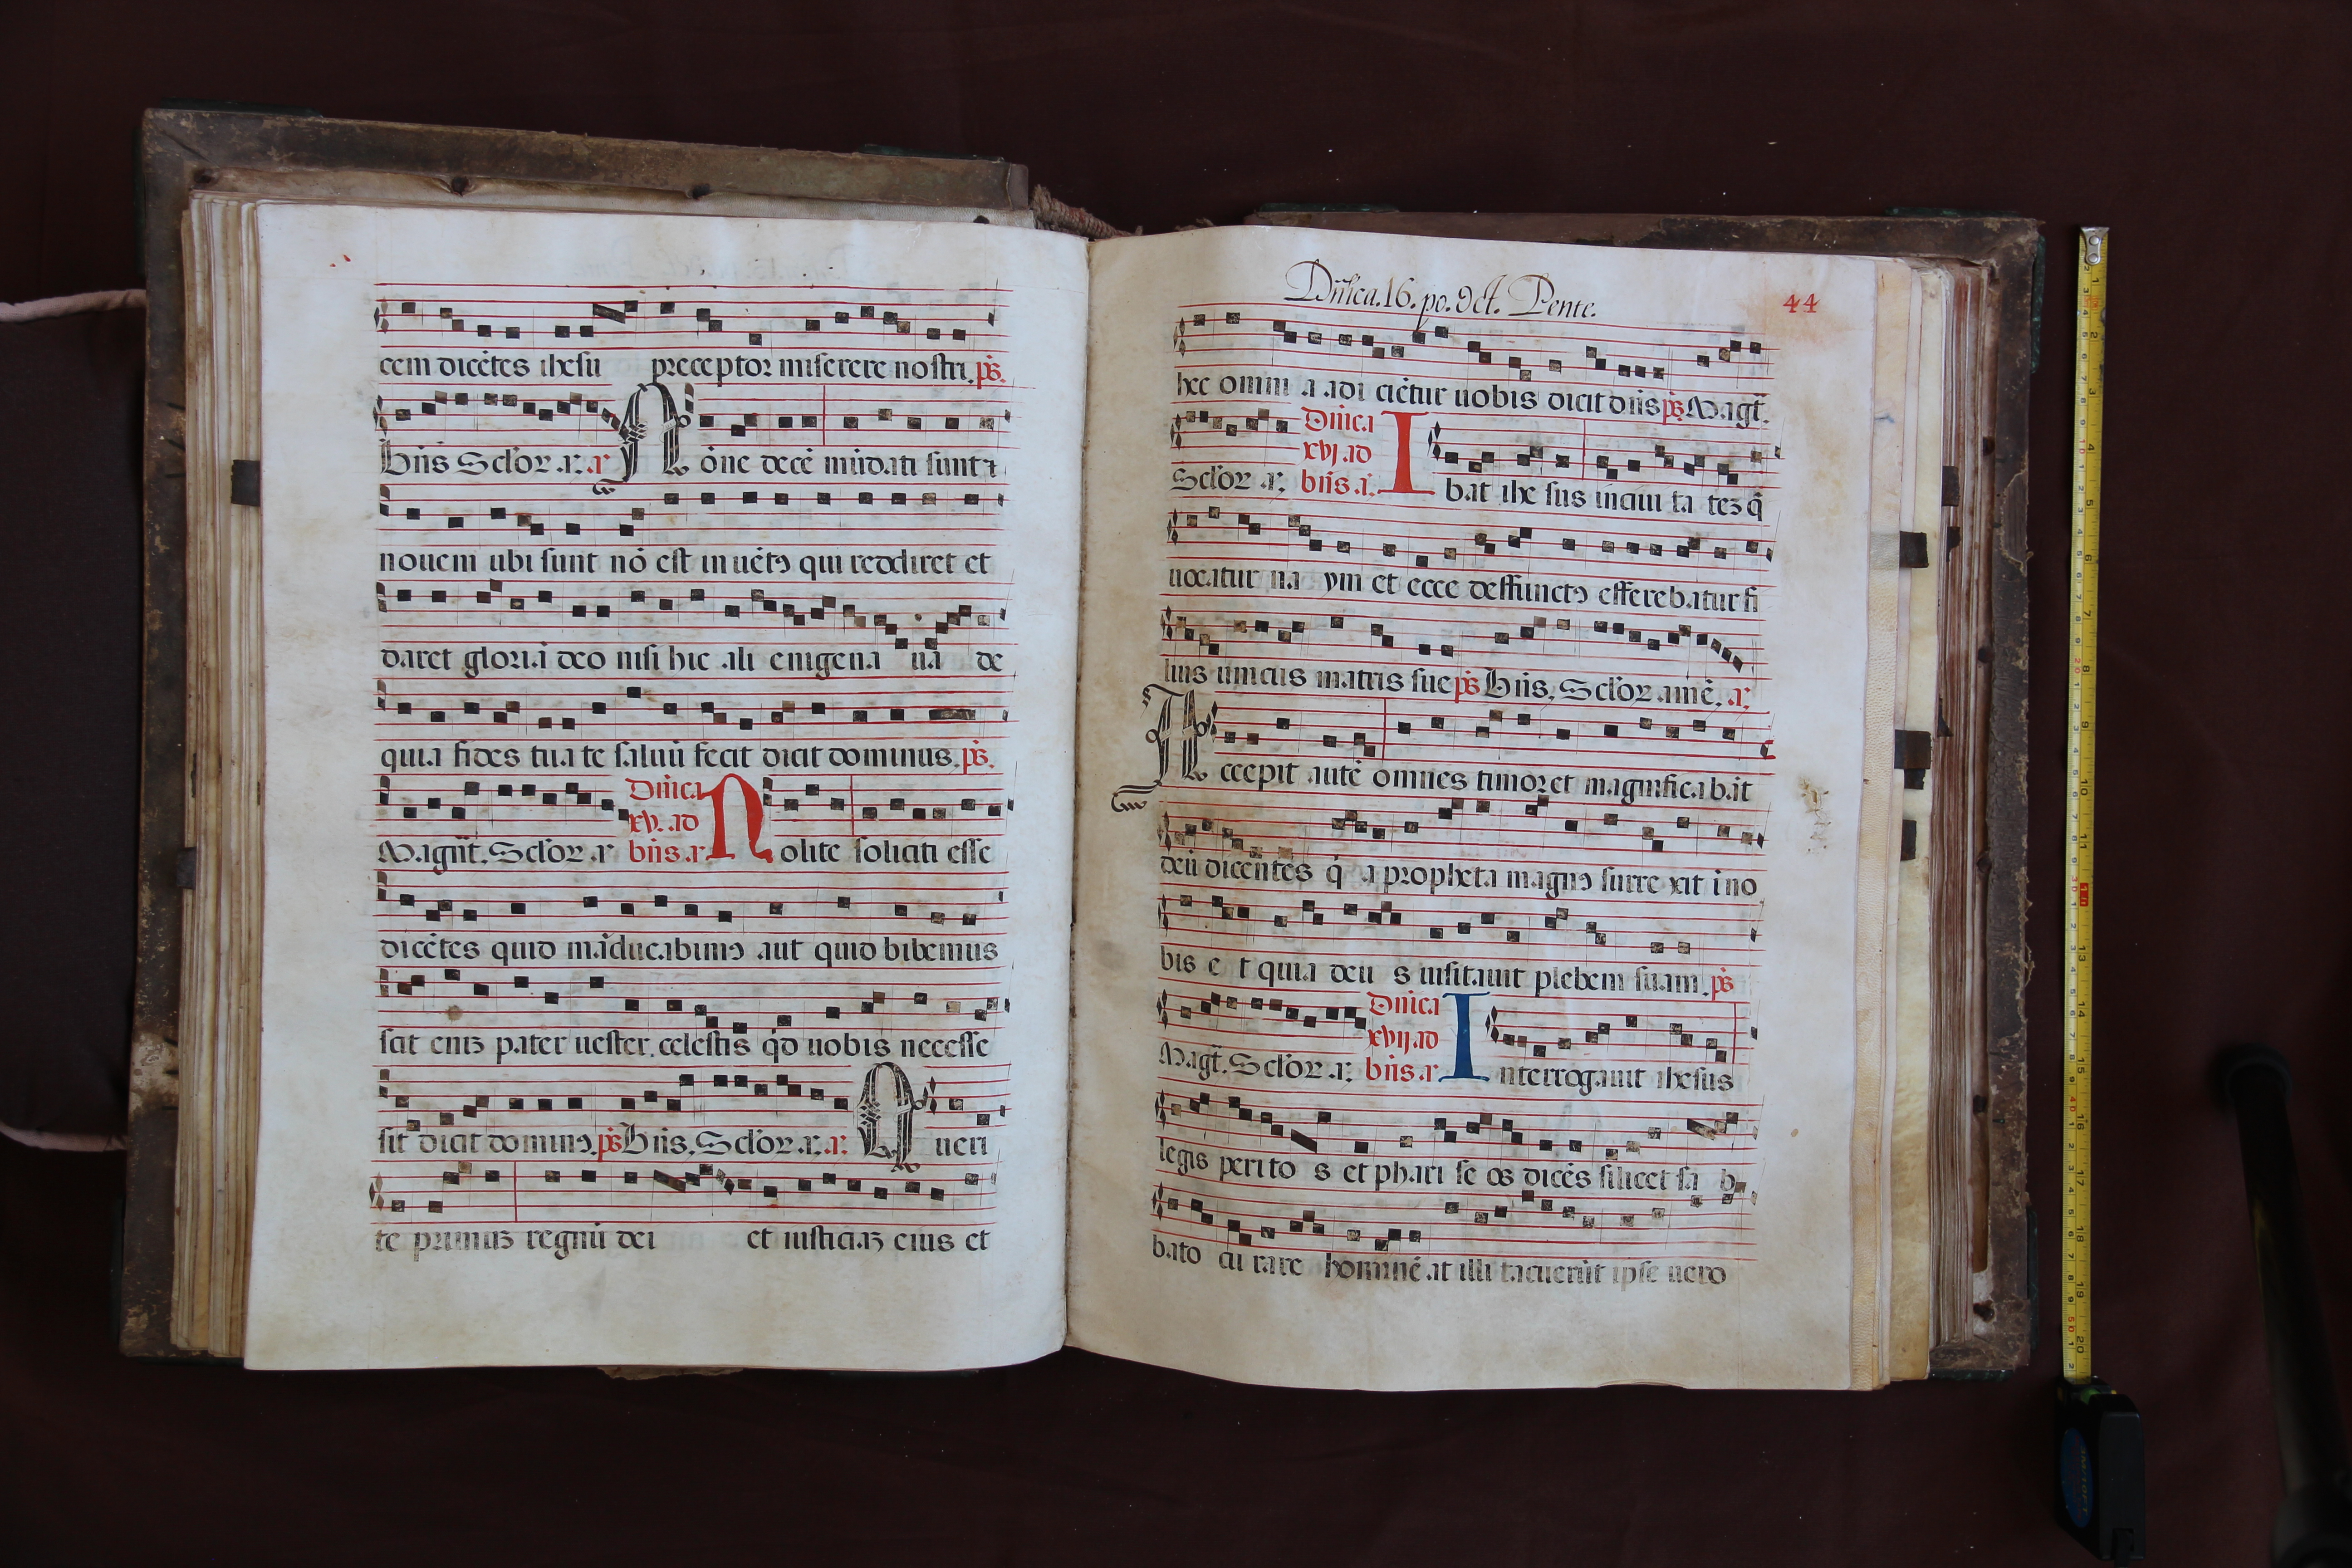 cem dicẽtes ihesu preceptor miserere nostri. ps.
Bñs Sclor .a. a Nõne decẽ mũdati sunt ⁊
nouem ubi sunt nõ est inuẽtꝰ qui reddiret et
daret gloriã deo nisi hic ali enigena ua de
quia fides tua te saluũ fecit dicit dominus. ps.
Dñica
xv. ad
Magñt. Sclor .a bñs .a Nolite soliciti esse
dicẽtes quid mãducabimꝰ aut quid bibemus
scit eniz pater uester celestis qd̃ uobis necesse
sit dicit dominꝰ. ps Bñs. Sclor .a. a. Queri
te primuz regnũ dei et iusticiaz eius et
Dñica. 16. po. Oct. Pente.
44
hec omni a adi ciẽtur uobis dicit dñs ps Magt̃.
Dñica
xvj ad
Sclor .a. bñs .a. Ibat ihe sus in ciui ta tez q̃
uocatur na ym et ecce deffunctꝰ efferebatur fi
lius unicus matris sue ps Bñs. Sclor amẽ. a.
Accepit autẽ omnes timor et magnificabãt
deũ dicentes q̓ a propheta magnꝰ surre xit ĩ no
bis e t quia deu s uisitauit plebem suam. ps
Dñica
xvij ad
Magt̃. Sclor .a. bñs .a Interrogauit ihesus
legis perito s et phari se os dicẽs si licet sa b
bato cu rare hominẽ at illi tacuerũt ipse uero